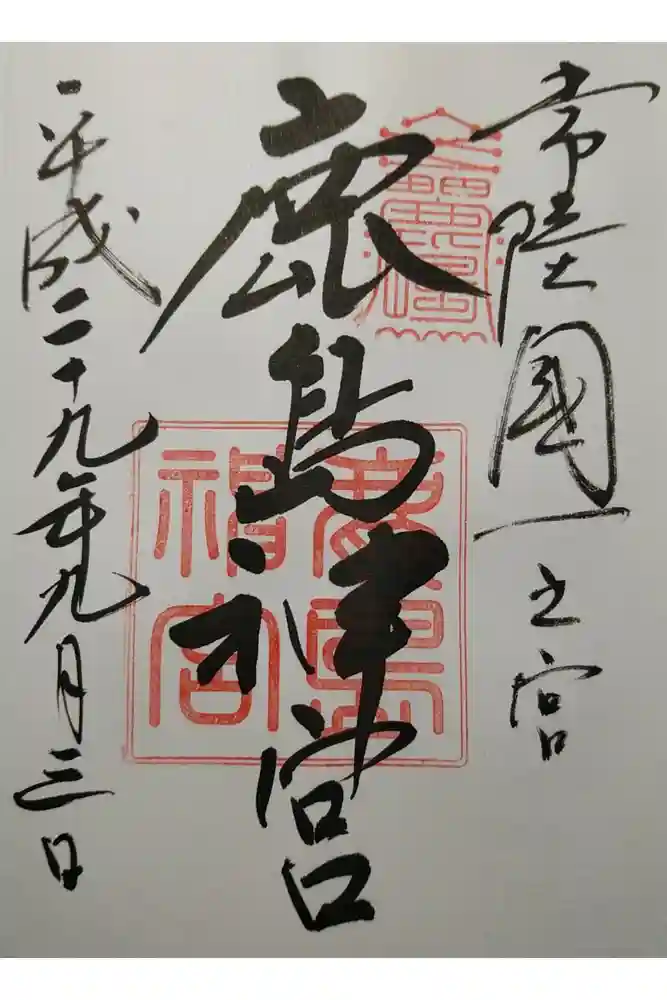 常陸國一之宮
鹿島神宮
平成二十九年九月三日
鹿島
神宮